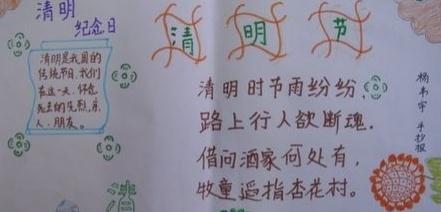 清明
纪念日
清明是我国的
传统节日，我们
在这一天，怀念
死去的先烈，亲
人、朋友。
清 明 节
清明时节雨纷纷，
路上行人欲断魂。
借问酒家何处有，
牧童遥指杏花村。
手抄报